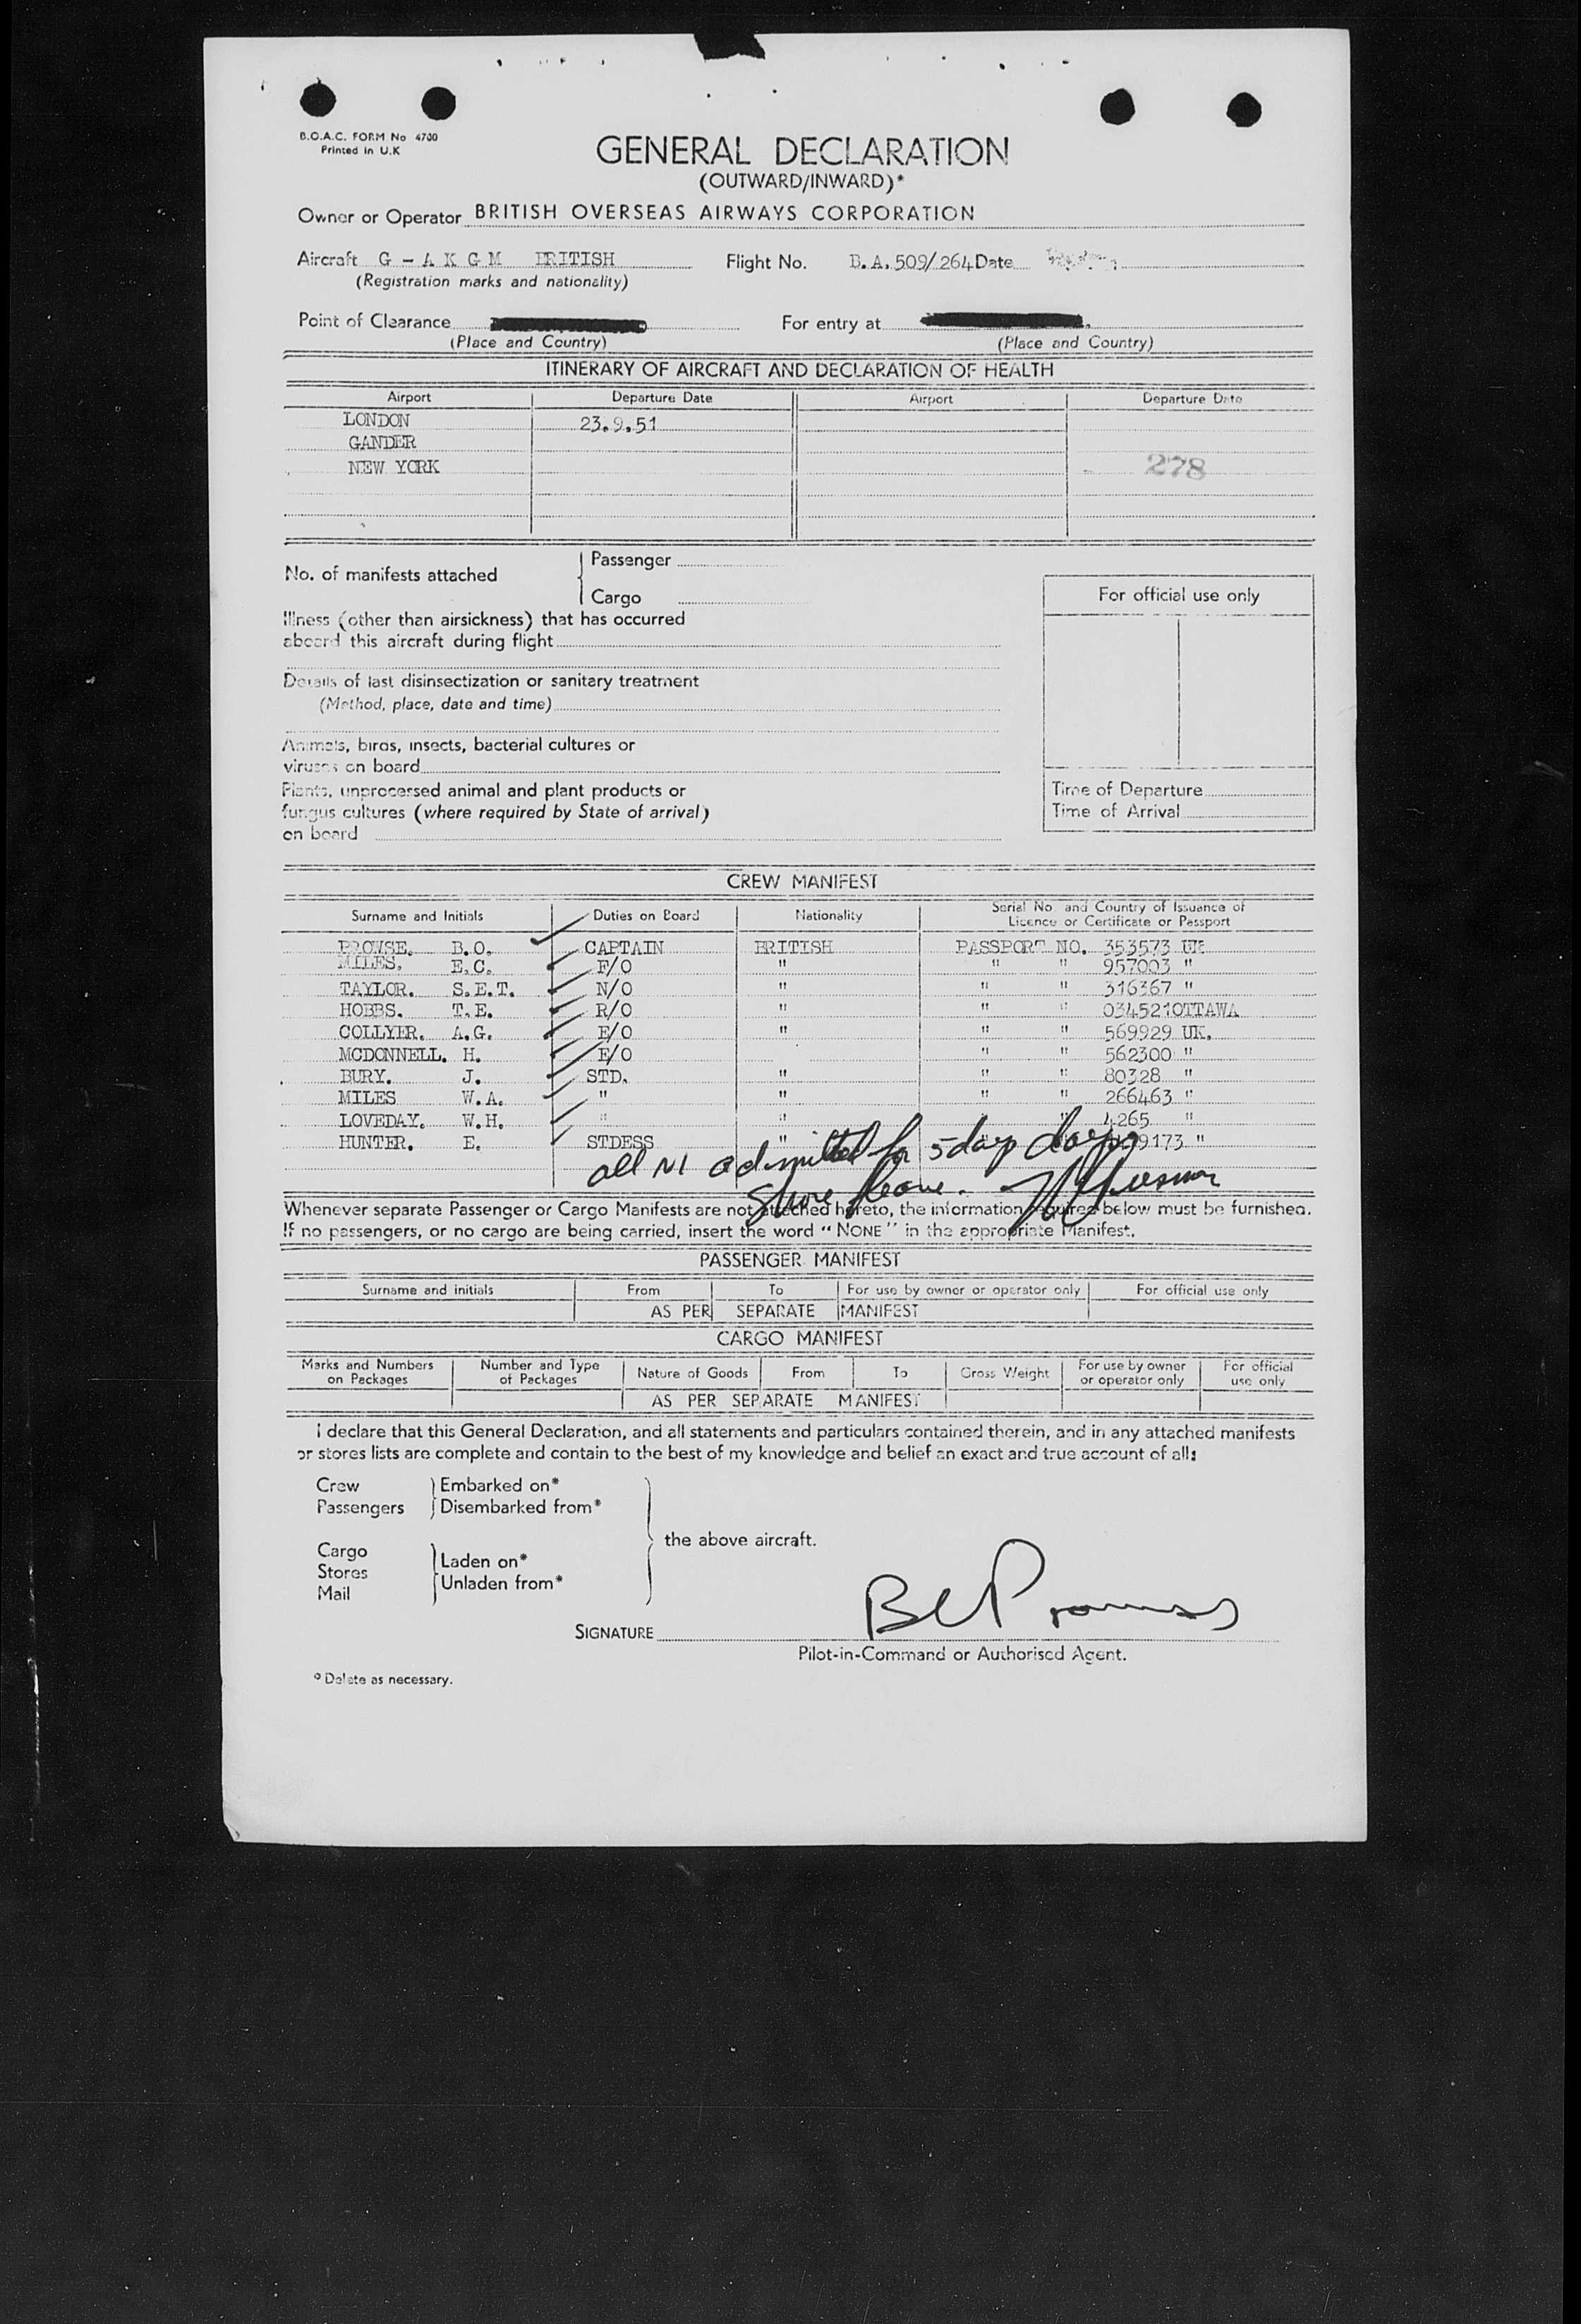 B.O.A.C. FORM No 4700
Printed in U.K
GENERAL DECLARATION
(OUTWARD/INWARD)*
Owner or Operator BRITISH OVERSEAS AIRWAYS CORPORATION
Aircraft G - A K G M BRITISH Flight No. B.A.509/264 Date
(Registration marks and nationality)
Point of Clearance For entry at
(Place and Country) (Place and Country)
ITINERARY OF AIRCRAFT AND DECLARATION OF HEALTH
Airport Departure Date Airport Departure Date
LONDON 23.9.51
GANDER
NEW YORK 278
No. of manifests attached Passenger
Cargo
For official use only
Illness (other than airsickness) that has occurred
aboard this aircraft during flight
Details of last disinsectization or sanitary treatment
(Method, place, date and time)
Animals, birds, insects, bacterial cultures or
viruses on board
Plants, unprocessed animal and plant products or
fungus cultures (where required by State of arrival)
on board
Time of Departure
Time of Arrival
CREW MANIFEST
Surname and Initials Duties on Board Nationality Serial No. and Country of Issuance of
Licence or Certificate or Passport
PROWSE. B.O. CAPTAIN BRITISH PASSPORT NO. 353573 UK
MILES. E.C. F/O " " " 957003 "
TAYLOR. S.E.T. N/O " " " 316367 "
HOBBS. T.E. R/O " " " 034521OTTAWA
COLLYER. A.G. E/O " " " 569929 UK.
MCDONNELL. H. E/O " " 562300 "
BURY. J. STD. " " " 80328 "
MILES W.A. " " " " 266463 "
LOVEDAY. W.H. " " " 4265 "
HUNTER. E. STDESS " 9173 "
all N1 admitted for 5 days days
Shore leave.
Whenever separate Passenger or Cargo Manifests are not attached hereto, the information required below must be furnished.
If no passengers, or no cargo are being carried, insert the word "NONE" in the appropriate Manifest.
PASSENGER MANIFEST
Surname and initials From To For use by owner or operator only For official use only
AS PER SEPARATE MANIFEST
CARGO MANIFEST
Marks and Numbers on Packages Number and Type of Packages Nature of Goods From To Gross Weight For use by owner or operator only For official use only
AS PER SEPARATE MANIFEST
I declare that this General Declaration, and all statements and particulars contained therein, and in any attached manifests
or stores lists are complete and contain to the best of my knowledge and belief an exact and true account of all:
Crew Embarked on*
Passengers Disembarked from*
the above aircraft.
Cargo
Stores Laden on*
Mail Unladen from*
SIGNATURE
Pilot-in-Command or Authorised Agent.
* Delete as necessary.